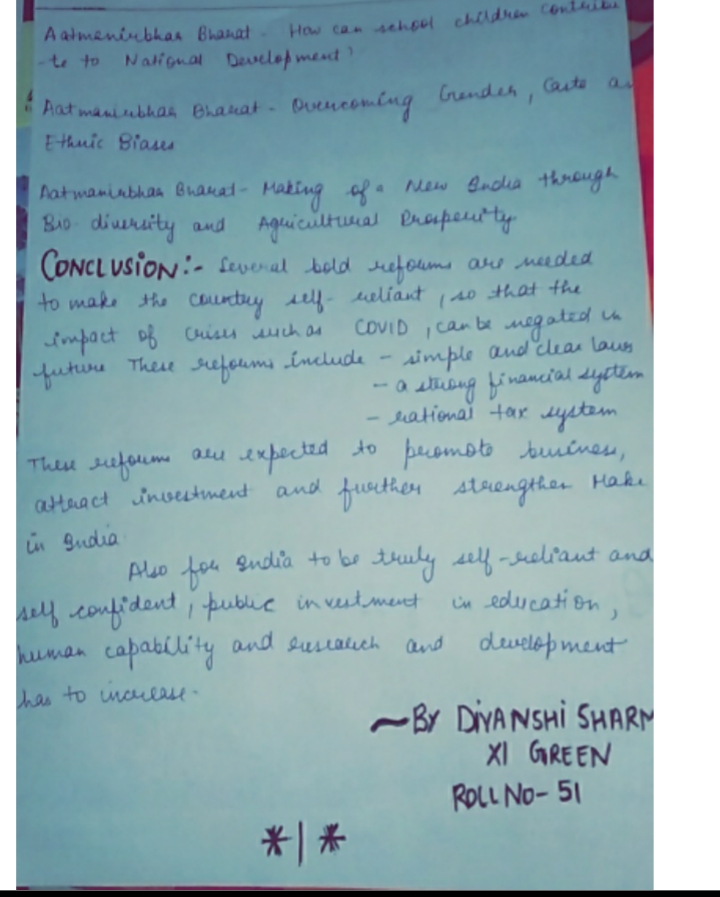 Aatmanirbhar Bharat - How can school children contribu
-te to National Development?
Aatmanirbhar Bharat - Overcoming Gender, Caste a
Ethnic Biases
Aatmanirbhar Bharat - Making of a New India through
Bio diversity and Agricultural Prosperity
CONCLUSION:- Several bold reforms are needed
to make the country self-reliant, so that the
impact of crises such as COVID, can be negated in
future These reforms include - simple and clear laws
- a strong financial system
- rational tax system
These reforms are expected to promote business,
attract investment and further strengthen Make
in India.
Also for India to be truly self-reliant and
self confident, public investment in education,
human capability and research and development
has to increase.
~BY DIYANSHI SHARM
XI GREEN
ROLL NO- 51
*|*